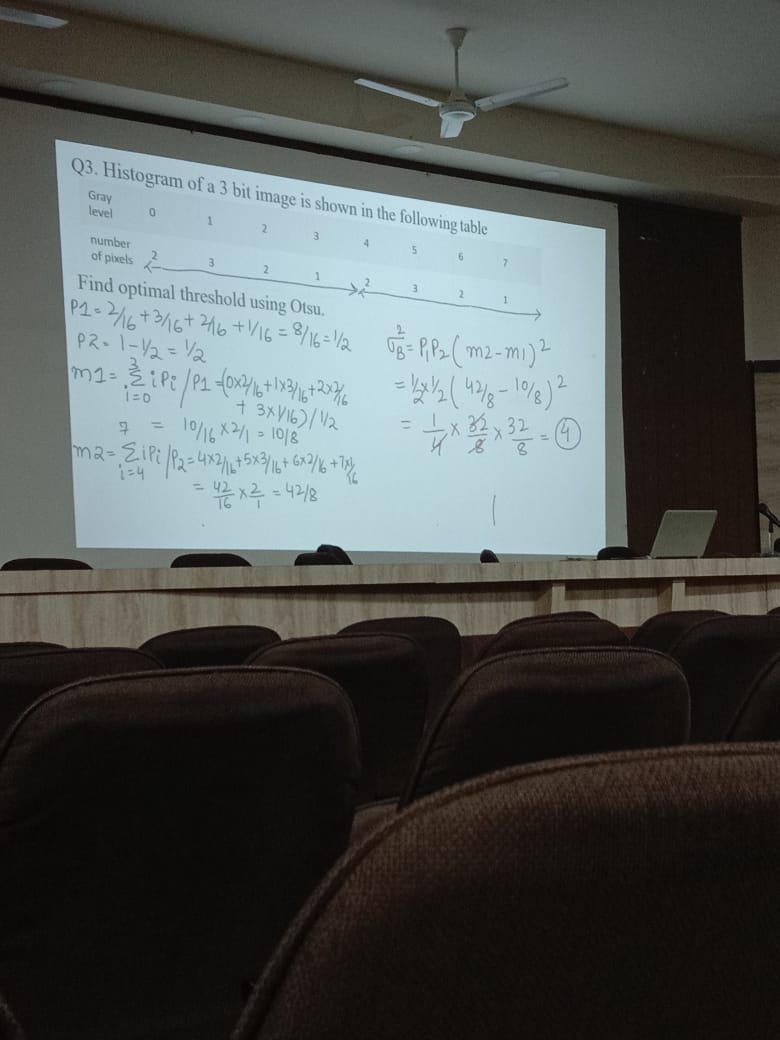 Q3. Histogram of a 3 bit image is shown in the following table
Gray level 0 1 2 3 4 5 6 7
number of pixels 2 3 2 1 2 3 2 1
Find optimal threshold using Otsu.
P1 = 2/16 + 3/16 + 2/16 + 1/16 = 8/16 = 1/2
P2 = 1 - 1/2 = 1/2
m1 = 3 Σ i=0 iPi / P1 = (0x2/16 + 1x3/16 + 2x2/16
+ 3x1/16) / 1/2
= 10/16 x 2/1 = 10/8
m2 = 7 Σ i=4 iPi / P2 = 4x2/16 + 5x3/16 + 6x2/16 + 7x1/16
= 42/16 x 2/1 = 42/8
σB² = P1P2 (m2 - m1)²
= 1/2 x 1/2 (42/8 - 10/8)²
= 1/4 x 32/8 x 32/8 = 4